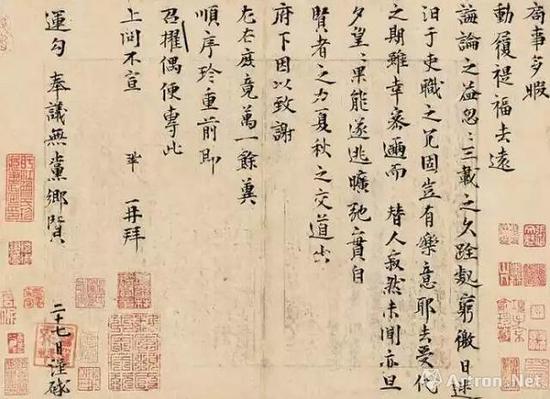 局事多暇
動履禔福去遠
誨論之益忽忽三載之久跧處窮徼日迷
汩于吏職之冗固豈有樂意耶去受代
之期雖幸密邇而 替人寂然未聞亦旦
夕望望果能遂逃曠弛實自
賢者之力夏秋之交道出
府下因以致謝
左右庶竟萬一餘冀
順序珍重前即
召擢偶便專此
上問不宣 鞏 再拜
運勾 奉議無黨鄉賢 二十七日謹啟
Artron.Net